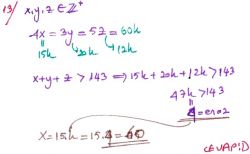 13) x,y,z ∈ Z⁺
4x = 3y = 5z = 60k
15k 20k 12k
x+y+z > 143 ⟹ 15k + 20k + 12k > 143
47k > 143
4 = en az
x = 15k = 15.4 = 60
CEVAP: D